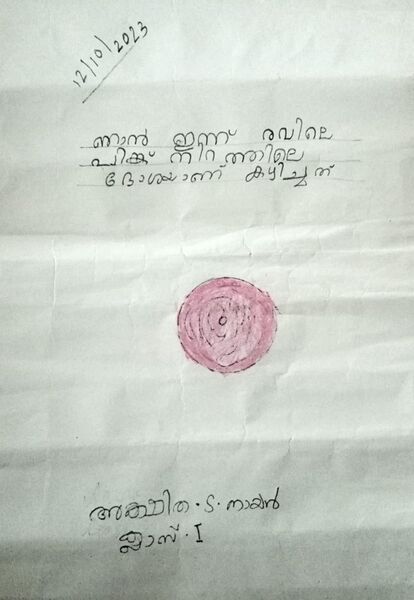 12/10/2023
ഞാൻ ഇന്ന് രവിലെ
പിങ്ക് നിറത്തിലെ
ദോശയാണ് കഴിച്ചത്
അക്ഷിത . S . നായർ
ക്ലാസ് . I